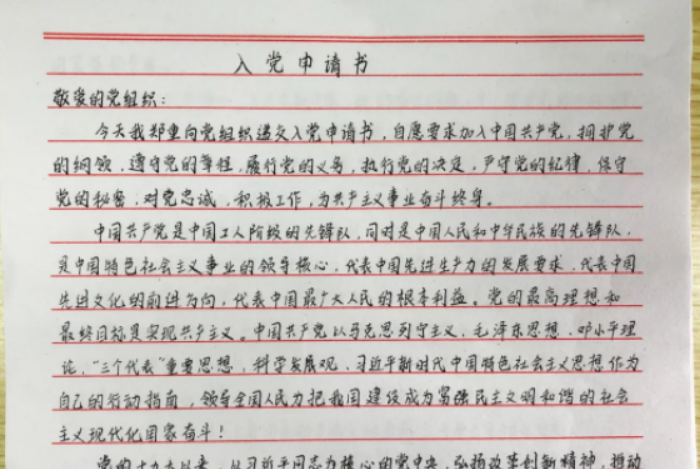 入党申请书
敬爱的党组织：
今天我郑重向党组织递交入党申请书，自愿要求加入中国共产党，拥护党
的纲领，遵守党的章程，履行党的义务，执行党的决定，严守党的纪律，保守
党的秘密，对党忠诚，积极工作，为共产主义事业奋斗终身。
中国共产党是中国工人阶级的先锋队，同时是中国人民和中华民族的先锋队，
是中国特色社会主义事业的领导核心，代表中国先进生产力的发展要求，代表中国
先进文化的前进方向，代表中国最广大人民的根本利益。党的最高理想和
最终目标是实现共产主义。中国共产党以马克思列宁主义、毛泽东思想、邓小平理
论、“三个代表”重要思想、科学发展观、习近平新时代中国特色社会主义思想作为
自己的行动指南，领导全国人民力把我国建设成为富强民主文明和谐的社会
主义现代化国家奋斗！
党的十九大以来，以习近平同志为核心的党中央，弘扬改革创新精神，推动